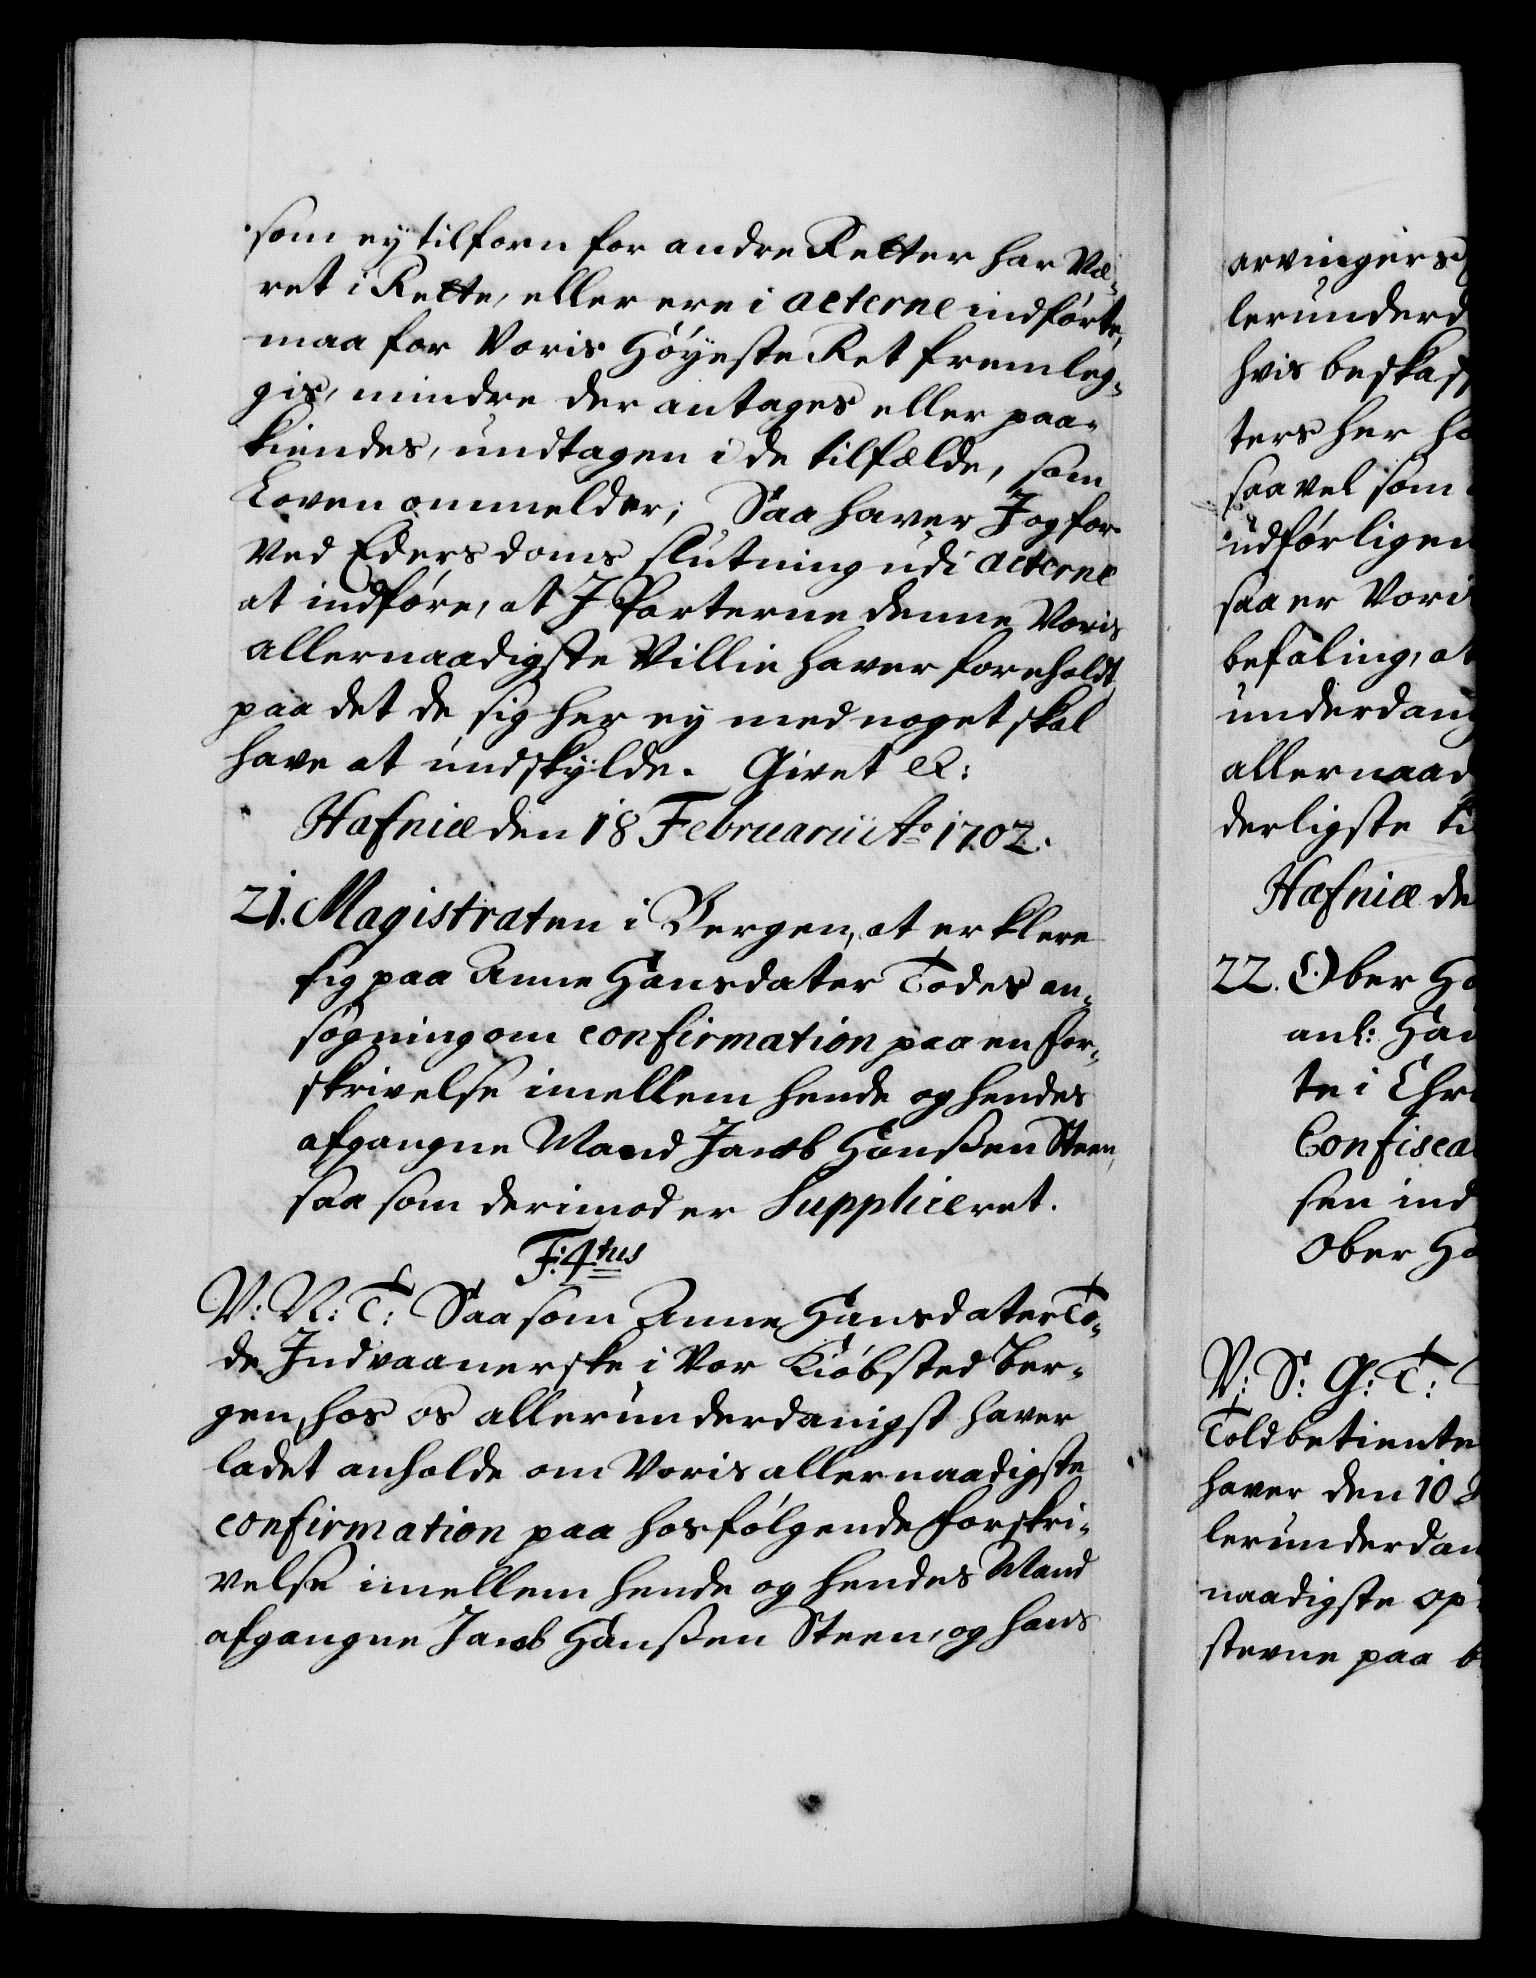 som ey tilforn for andre Retter har Væ-
ret i Rette, eller ere i acterne indførte,
maa for Voris Høyeste Ret fremleg-
gis, mindre der antages eller paa-
kiendes, undtagen i de tilfælde, som
Loven ommelder; Saa haver I og for
Ved Eders doms slutning udi acterne
at indføre, at I Parterne denne Voris
allernaadigste Villie haver foreholdt
paa det de sig her ey med noget skal
have at undskylde. Givet &:
Hafniæ den 18 Februarii Ao 1702.
21. Magistraten i Bergen, at erklere
sig paa Anne Hansdater Todes an-
søgning om confirmation paa en for-
skrivelse imellem hende og hendes
afgangne Mand Jacob Hanßen Steen,
saa som derimod er Suppliceret.
F: 4tus
V: N: T: Saa som Anne Hansdater To-
de Indvaanerske i Vor Kiøbsted Ber-
gen, hos os allerunderdanigst haver
ladet anholde om Voris allernaadigste
confirmation paa hosfølgende forskri-
velse imellem hende og hendes Mand
afgangne Jacob Hanßen Steen, og hans
arvingers
lerunderd
hvis beskaf
ters her ha
saavel som
udførligen
saa er Vori
befaling, at
underdani
allernaad
derligste ti
Hafniæ de
22. Ober Ho
anl: Han
te i Chri
Confisca
sen ind
Ober Ho
V: S: G: T:
Toldbetiente
haver den 10
lerunderdan
naadigste op
stevne paa